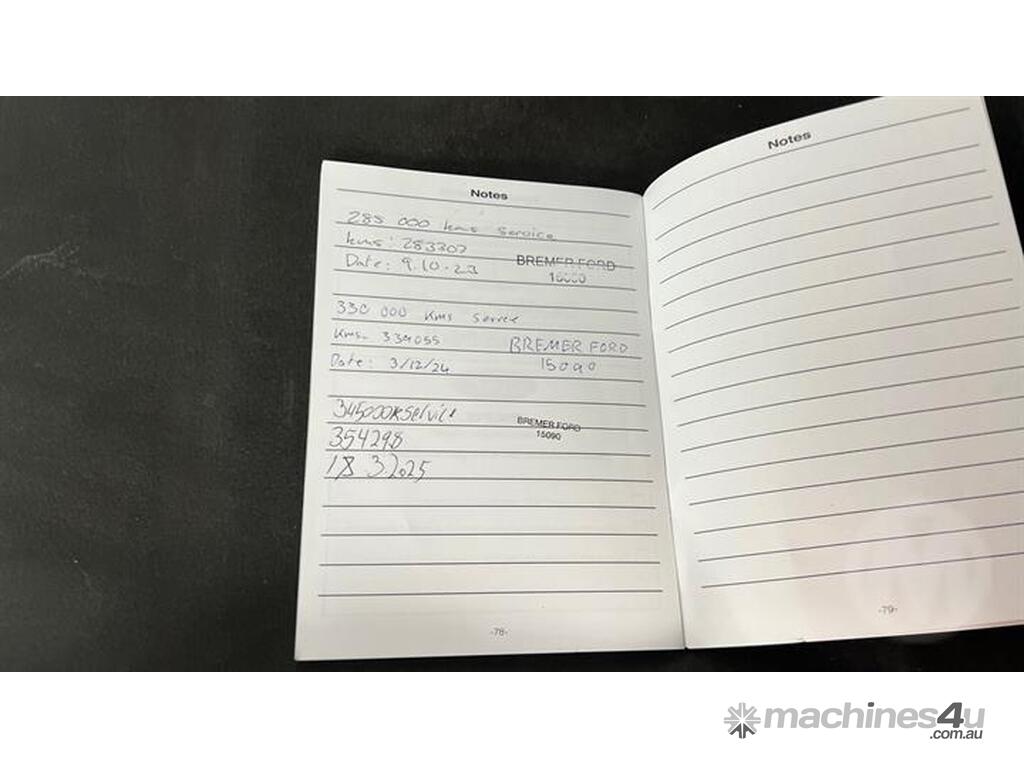 Notes
285 000 kms service
kms: 283307
Date: 9.10.23
BREMER FORD
15090
330 000 Kms service
Kms- 334055
BREMER FORD
Date: 3/12/24
15090
345000K Service
BREMER FORD
15090
354298
18 3 2025
-78-
Notes
-79-
machines4u
.com.au